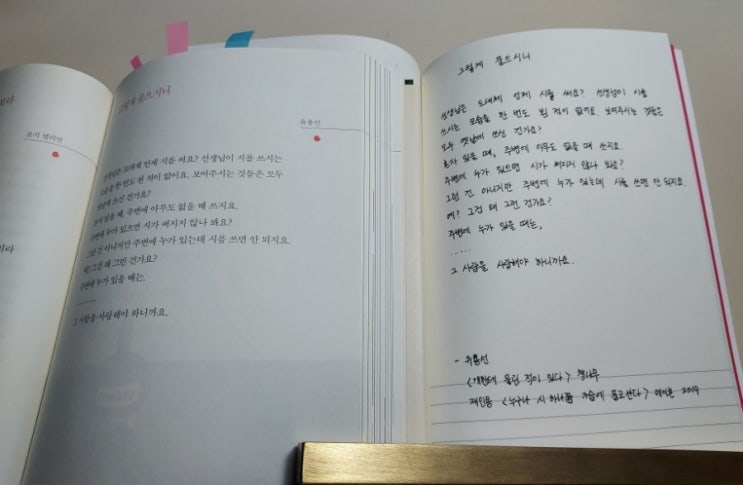 그렇게 물으시니
유용선
선생님은 도대체 언제 시를 써요? 선생님이 시를 쓰시는
모습을 한 번도 본 적이 없어요. 보여주시는 것들은 모두
옛날에 쓰신 건가요?
혼자 있을 때, 주변에 아무도 없을 때 쓰지요.
주변에 누가 있으면 시가 써지지 않나 봐요?
그런 건 아니지만 주변에 누가 있는데 시를 쓰면 안 되지요.
예? 그건 왜 그런 건가요?
주변에 누가 있을 때는,
……
그 사람을 사랑해야 하니까요.
그렇게 물으시니
선생님은 도대체 언제 시를 써요? 선생님이 시를
쓰시는 모습을 한 번도 본 적이 없어요. 보여주시는 것들은
모두 옛날에 쓰신 건가요?
혼자 있을 때, 주변에 아무도 없을 때 쓰지요.
주변에 누가 있으면 시가 써지지 않나 봐요?
그런 건 아니지만 주변에 누가 있는데 시를 쓰면 안 되지요.
예? 그건 왜 그런 건가요?
주변에 누가 있을 때는,
……
그 사람을 사랑해야 하니까요.
- 유용선
<개한테 물린 적이 있다> 책나무
재인용 <누구나 시 하나쯤 가슴에 품고산다> 메이븐 2019